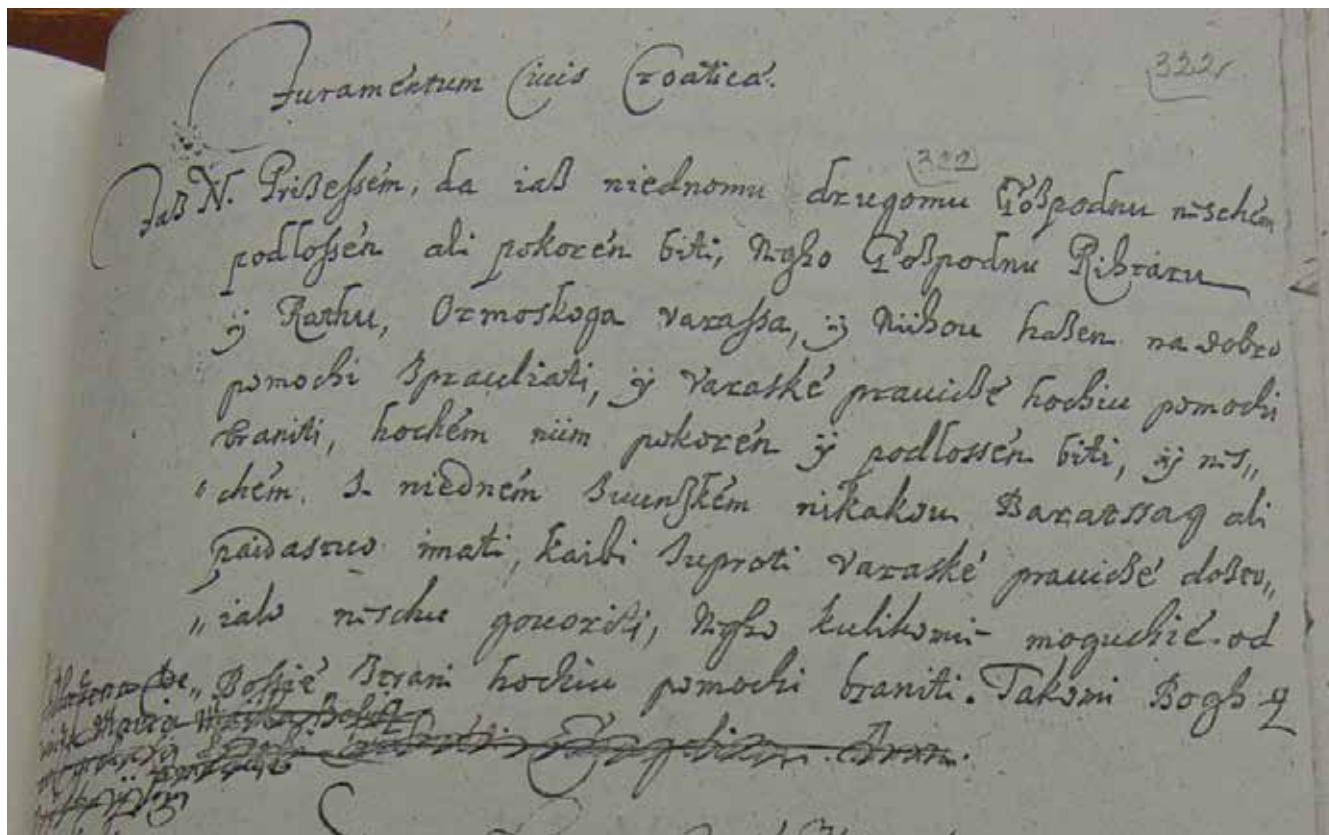 Juramentum Ciuis Croaticé.
322r
322
Jaß N. Prißessém, da iaß niednomu drugomu Goßpodnu nischém
podlossén ali pokorén biti, Nego Goßpodnu Rihtaru
ÿ Rathu, Ormoskoga varassa, ÿ Niihou haßen na dobro
pomochi ßprauliati, ÿ varaské prauicße hochiu pomochi
braniti, hochém niim pokorén ÿ podlossén biti, ÿ nis„
„chém. ß niedném ßuunßkém nikakou Baratssag ali
paidastuo imati, kaibi ßuproti varaské prauicße doßto„
„ialo nischu gouoriti, Negho kulikomi moguchié od
„ Bossié ßtrani hochiu pomochi braniti. Takomi Bogh